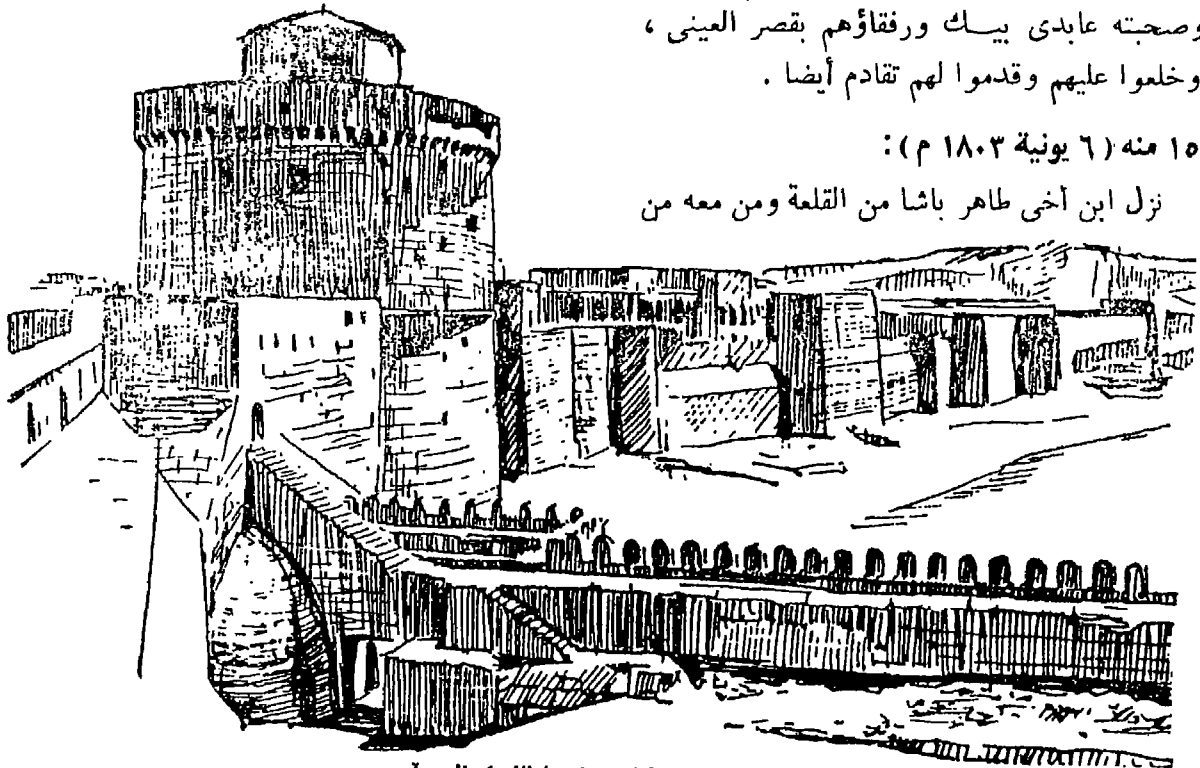 وصحبته عابدى بيـــك ورفقاؤهم بقصر العينى ،
وخلعوا عليهم وقدموا لهم تقادم أيضا .
١٥ منه ( ٦ يونية ١٨٠٣ م ) :
نزل ابن أخى طاهر باشا من القلعة ومن معه من